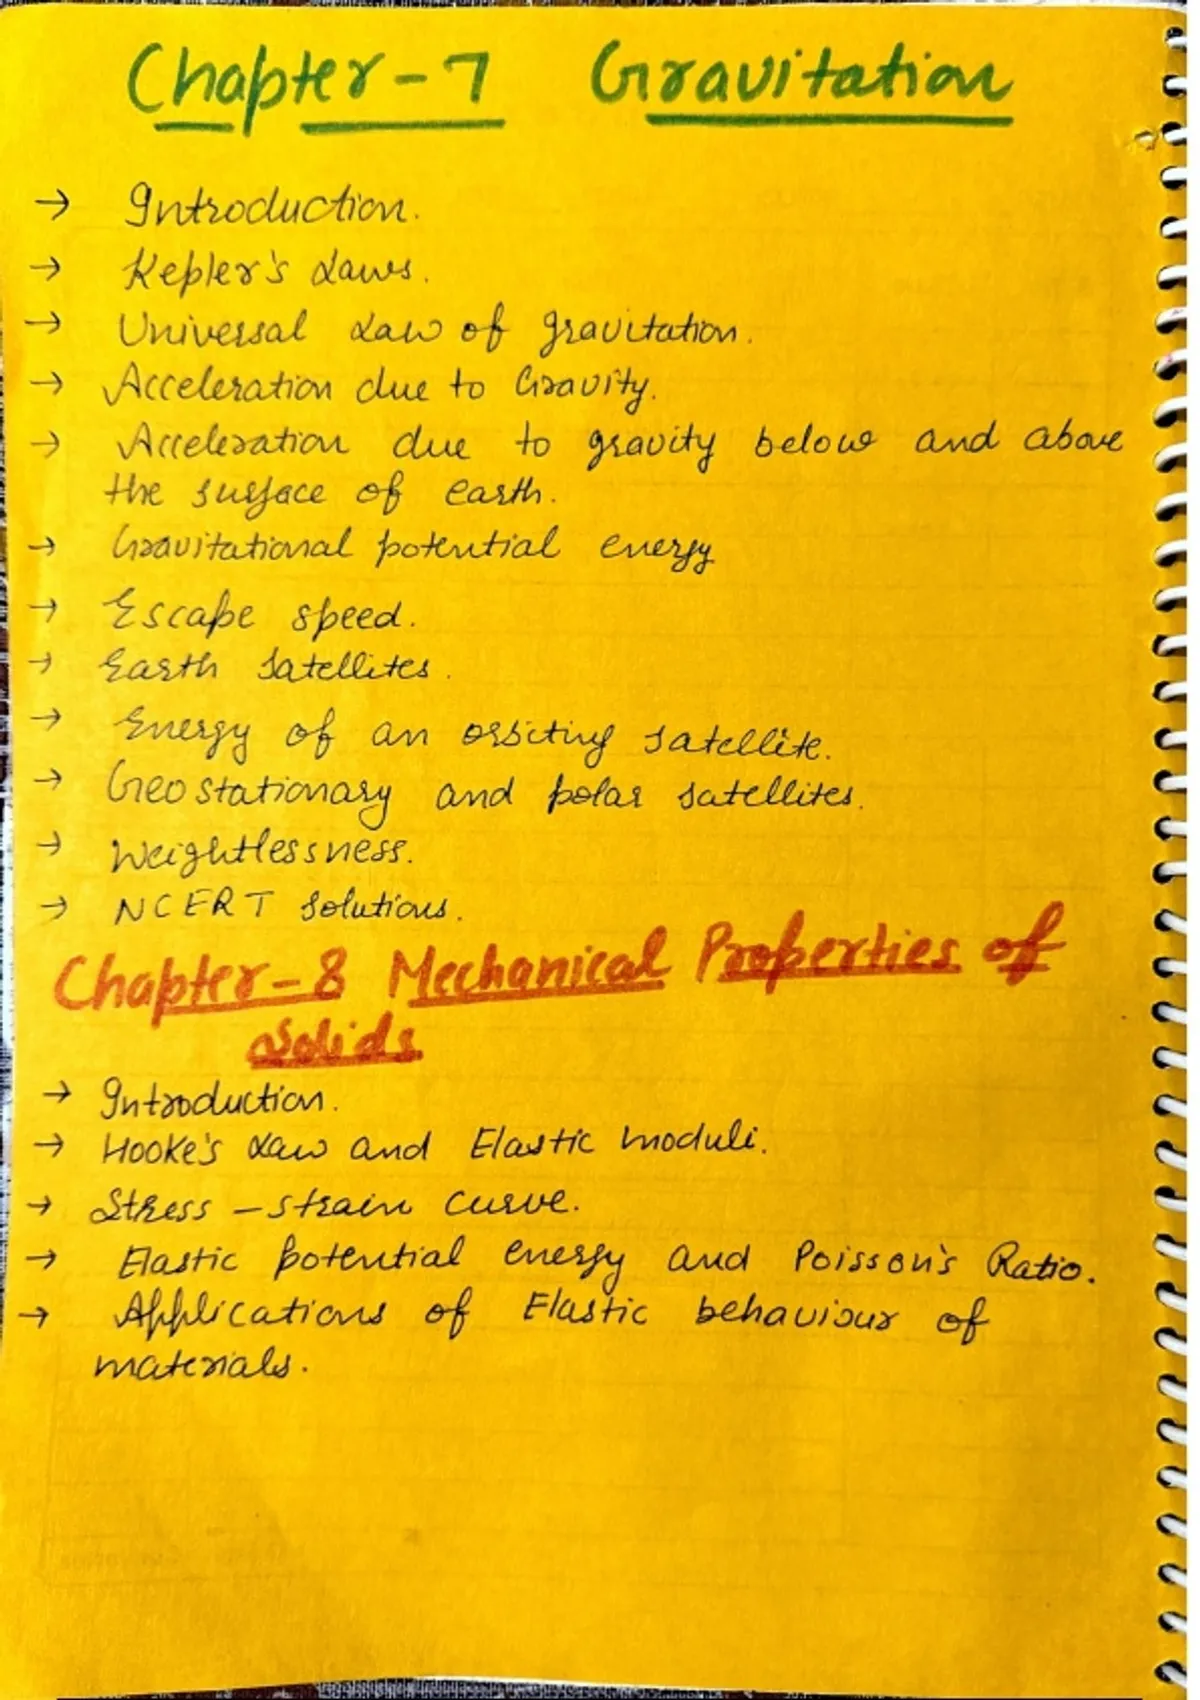 Chapter-7 Gravitation
→ Introduction.
→ Kepler's Laws.
→ Universal Law of gravitation.
→ Acceleration due to Gravity.
→ Acceleration due to gravity below and above
the surface of earth.
→ Gravitational potential energy
→ Escape speed.
→ Earth Satellites.
→ Energy of an orbiting satellite.
→ Geostationary and polar satellites.
→ Weightlessness.
→ NCERT Solutions.
Chapter-8 Mechanical Properties of
Solids
→ Introduction.
→ Hooke's Law and Elastic moduli.
→ Stress-strain curve.
→ Elastic potential energy and Poisson's Ratio.
→ Applications of Elastic behaviour of
materials.